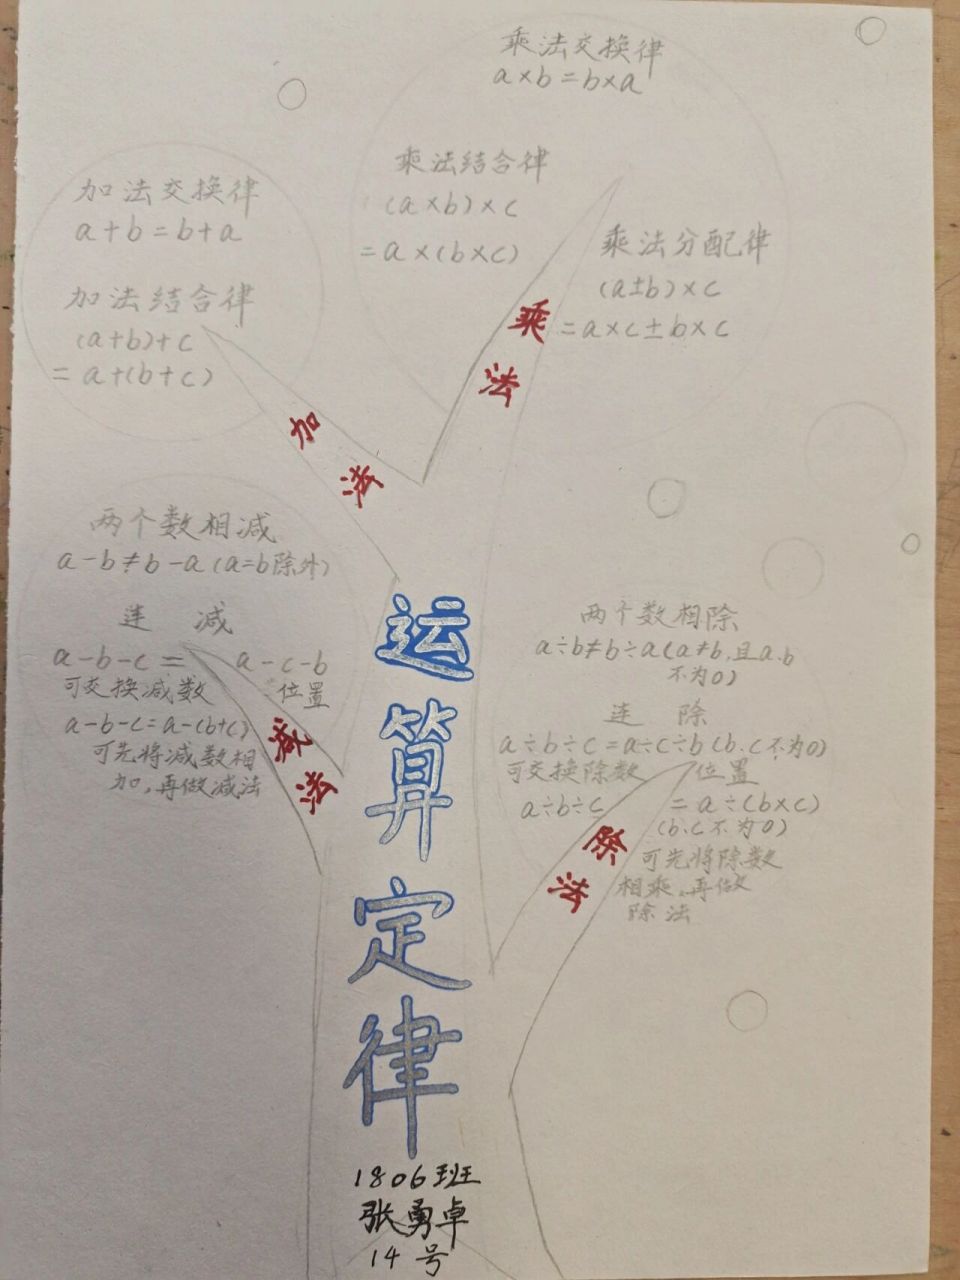 乘法交换律
a×b=b×a
乘法结合律
(a×b)×c
=a×(b×c)
乘法分配律
(a±b)×c
=a×c±b×c
乘法
加法交换律
a+b=b+a
加法结合律
(a+b)+c
=a+(b+c)
加法
两个数相减
a-b≠b-a(a=b除外)
连 减
a-b-c= a-c-b
可交换减数 位置
a-b-c=a-(b+c)
可先将减数相
加,再做减法
减法
两个数相除
a÷b≠b÷a(a≠b,且a.b
不为0)
连 除
a÷b÷c=a÷c÷b(b.c不为0)
可交换除数 位置
a÷b÷c =a÷(b×c)
(b.c不为0)
可先将除数
相乘,再做
除法
除法
运算定律
1806班
张勇卓
14号